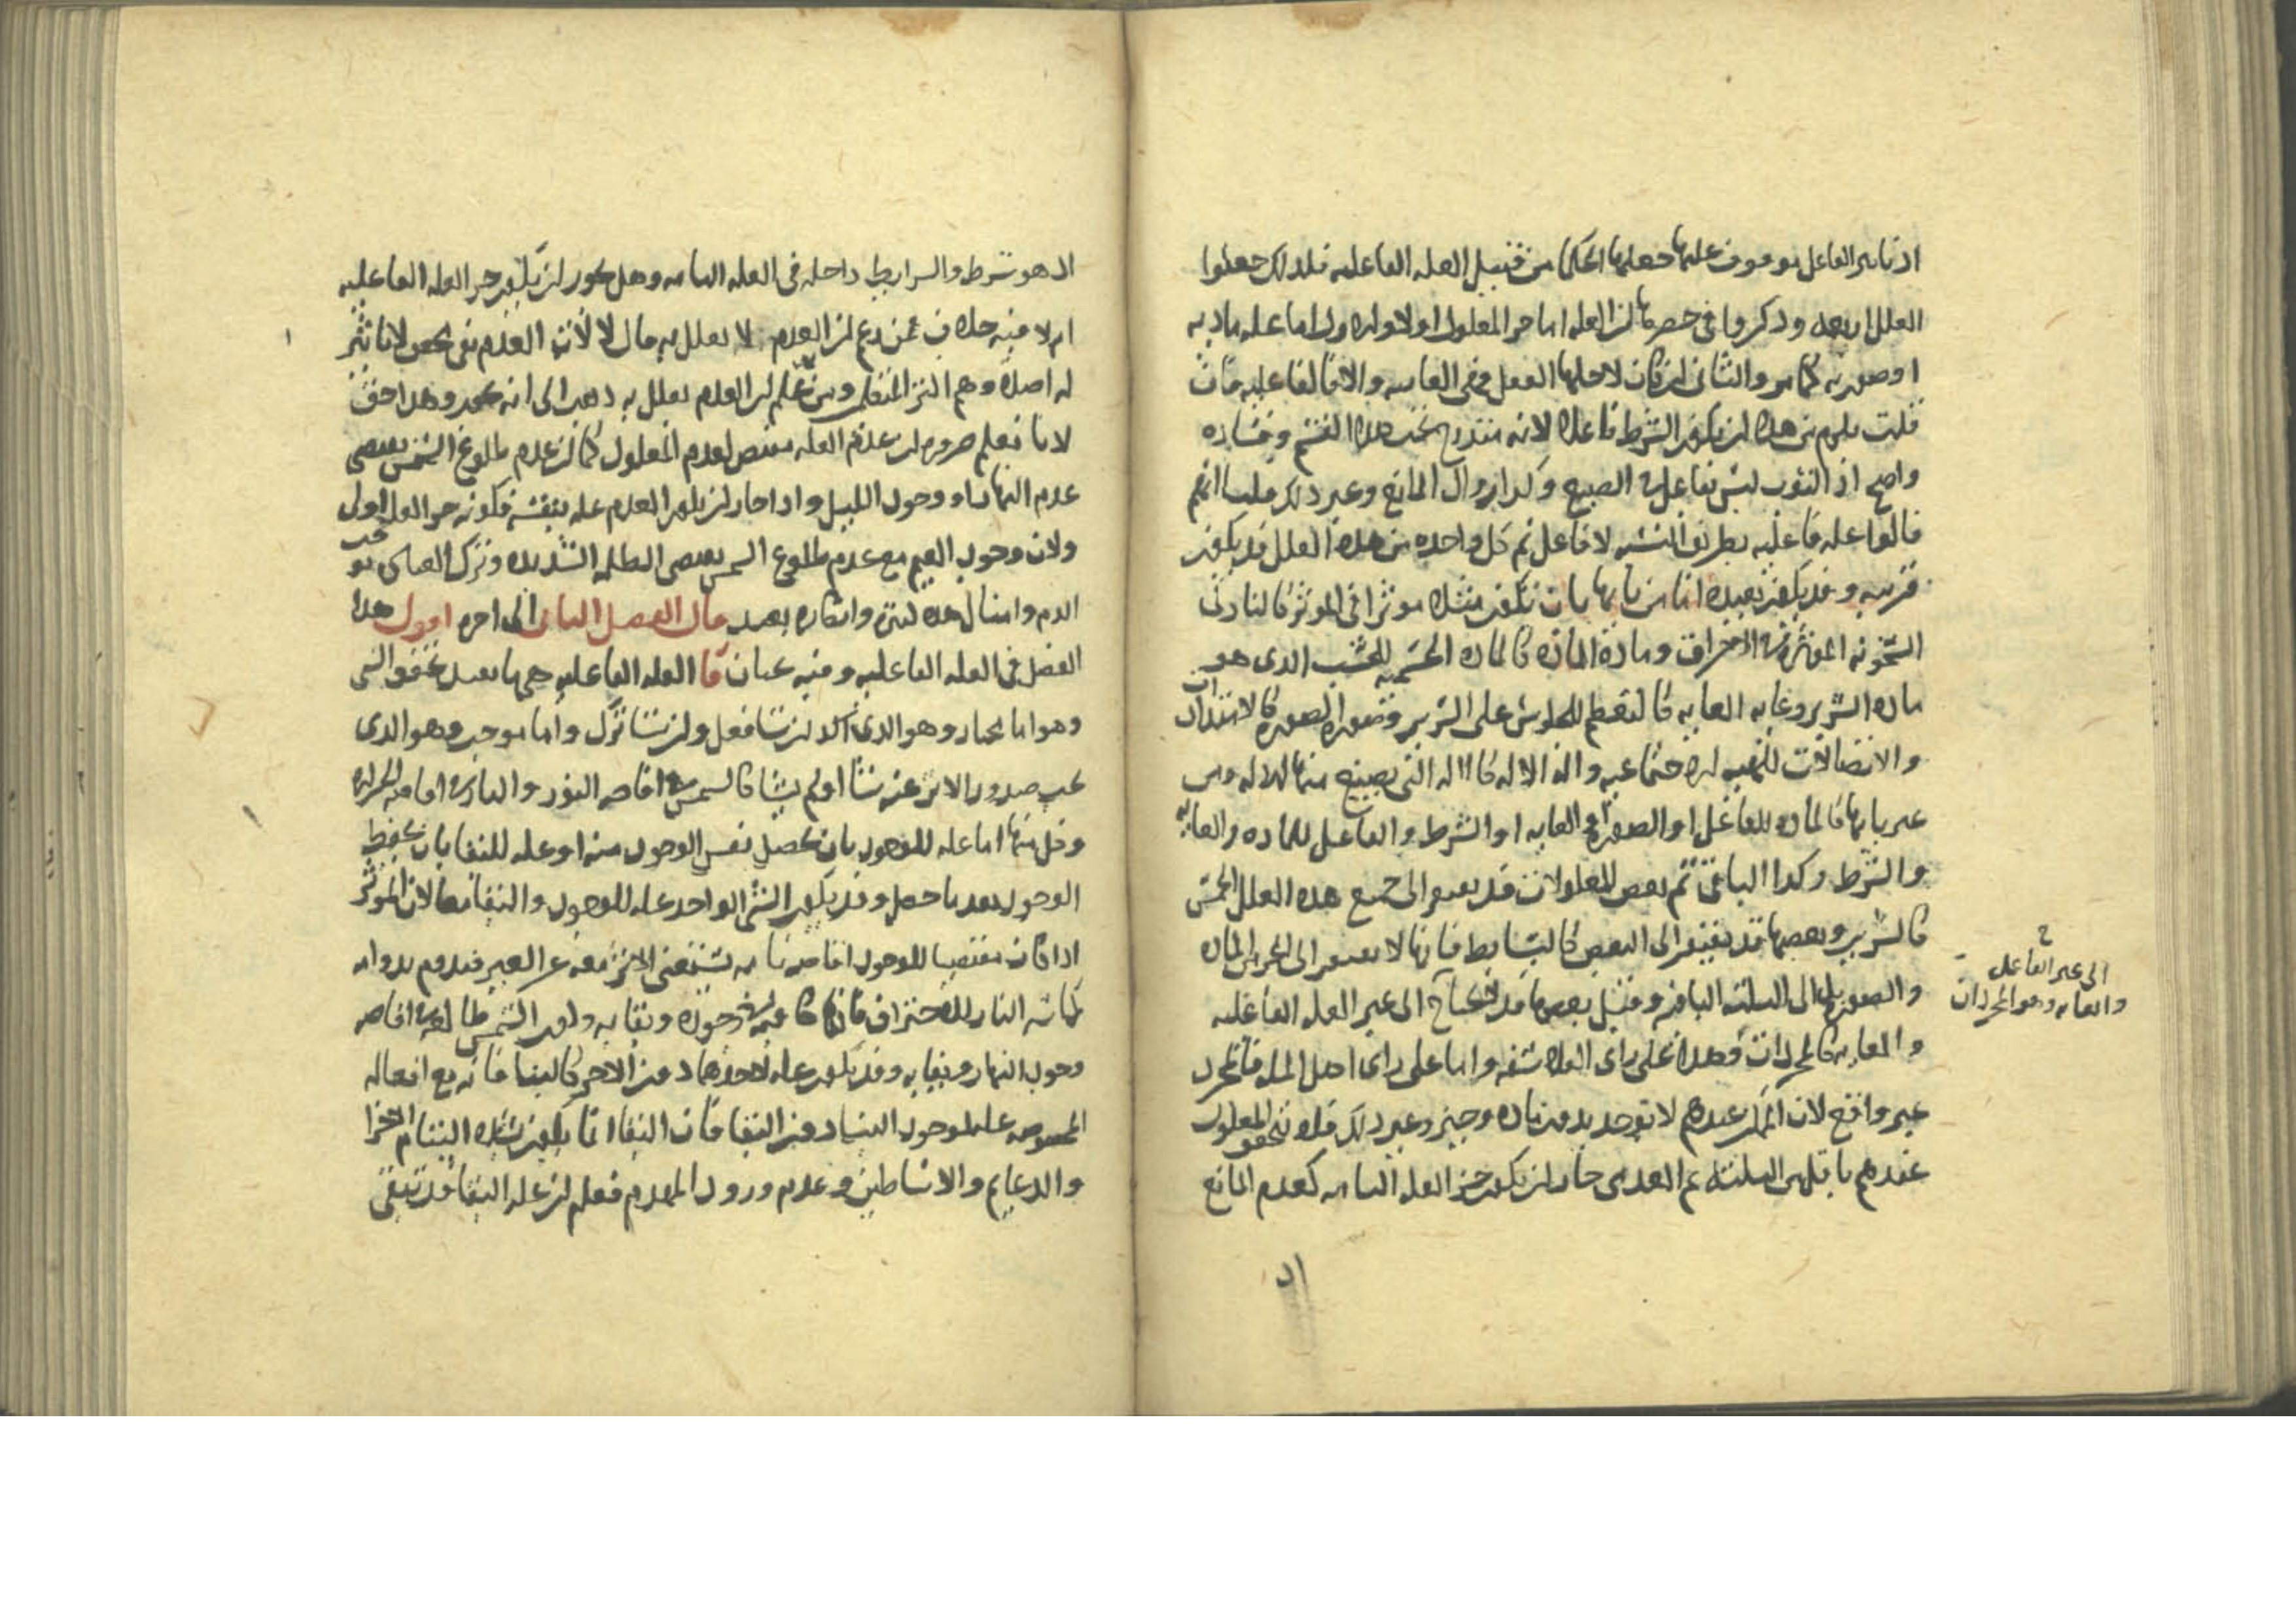 اذ تاثير الفاعل موقوف عليها جعلها الحكما من قبيل العله الفاعليه فلذلك جعلوا
العلل اربعه وذكروا في حصرها لان العله اما جز المعلول او لا والاول اما عله ماديه
او صوريه كما مر والثاني ان كان لاجلها الفعل فهي الغاييه والا فالفاعليه فان
قلت يلزم من هذا ان يكون الشرط فاعلا لانه مندرج تحت هذا القسم وفساده
واضح اذ الثوب ليس بفاعل الصبغ وكذا زوال المانع وغير ذلك قلنا انهم
قالوا عله فاعليه بطريق التشبه لا فاعل ثم كل واحده من هذه العلل قد يكون
قريبه وقد يكون بعيده اما من بابها بان تكون مثلا موثرا في الموثر كالنار في
السخونه الموثره الاحتراق وماده الماده كالماده الجسميه للخشب الذي هو
ماده السرير وغايه الغايه كالتعظيم للجلوس على السرير وصوره الصوره كالامتدادات
والاتصالات للهيه الاجتماعيه واله الاله كالاله التي يصنع منها الاله ومن
غير بابها كالماده للفاعل او الصوره او الغايه او الشرط والفاعل للماده والغايه
والشرط وكذا الباقي ثم بعض المعلولات قد يفتقر الى جميع هذه العلل الخمس
كالسرير وبعضها قد يفتقر الى البعض كالبسايط فانها لا يفتقر الى الجزين الماده
والصوره بل الى الثلثه الباقيه وقيل بعضها قد لا يحتاج الى غير العله الفاعليه
والغايه كالمجردات وهذا على راي الفلاسفه واما على راي اهل المله فالمجرد
غير واقع لان الممكن عندهم لا يوجد بدون ماده وحيز وغير ذلك فلا يتحقق المعلول
عندهم باقل من الثلثه ثم العدمي جاز ان يكون جز العله التامه كعدم المانع
الى غير الفاعل
والغايه وهو المجردات
الذ هو شرط والشرايط داخله في العله التامه وهل يجوز ان يكون جز العله الفاعليه
ام لا فيه خلاف فمن زعم ان العدم لا يعلل به قال لا لان العدم نفي محض لا تاثير
له اصلا وهم اكثر المتقدمين ومن علم ان العدم يعلل به ذهب الى انه يجوز وهذا حق
لانا نعلم ضروره ان عدم العله مقتض لعدم المعلول كما ان عدم طلوع الشمس يقتضي
عدم النهار او وجود الليل واذا جاز ان يكون العدم عله بنفسه فكونه جز العله اولى
ولان وجود الغيم مع عدم طلوع الشمس يقتضي الظلمه الشديده وترك الغذا يوجب
الدم وامثال هذه كثيره وانكاره بعيد قال الفصل الثاني الى اخره اقول هذا
الفصل في العله الفاعليه وفيه بحثان فا العله الفاعليه هي ما يفيد تحقق الشي
وهو اما مختار وهو الذي ان شا فعل وان شا ترك واما موجب وهو الذي
يجب صدور الاثر عنه شا او لم يشا كالشمس في افاضه النور والنار في افاضه الحراره
وكل منها اما عله للوجود بان يحصل نفس الوجود منه او عله للبقا بان يحفظ
الوجود بعد ما حصل وقد يكون الشي الواحد عله للوجود والبقا معا لان الموثر
اذا كان مقتضيا للوجود افاضه تامه يستغني الاثر معه عن الغير فيدوم بدوامه
كماسه النار للاحتراق فانها كافيه في وجوده وبقايه ونور الشمس افاضه
وجود النهار وبقايه وقد يكون عله لاحدهما دون الاخر كالبنا فانه مع افعاله
المخصوصه عله لوجود البنا دون البقا فان البقا انما يكون بشده التيام الاجزا
والدعايم والاساطين وعدم ورود المهدم فعلم ان عله البقا قد تبقى